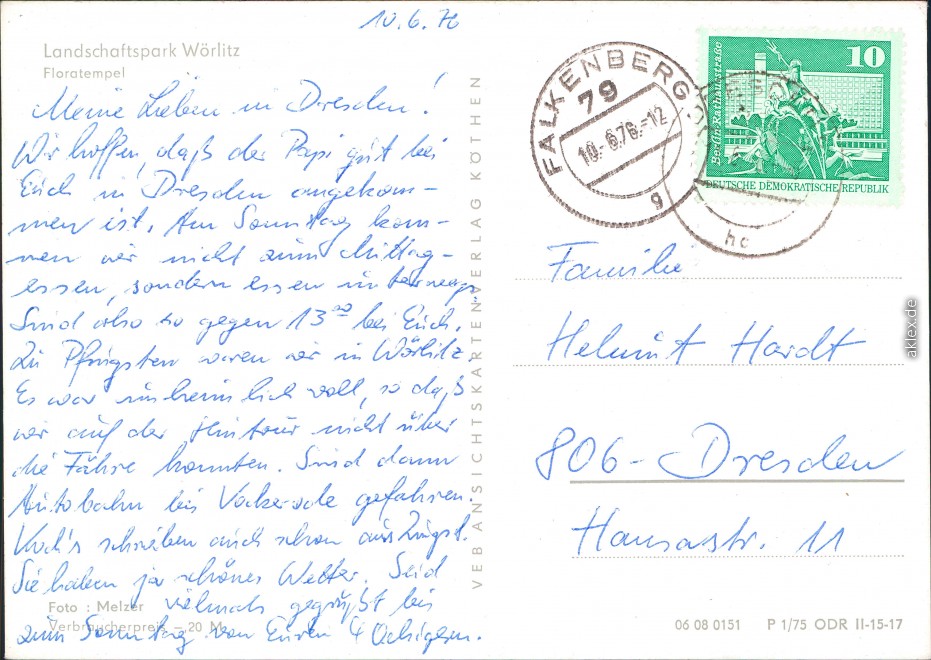 10.6.76
Landschaftspark Wörlitz
Floratempel
Meine Lieben in Dresden!
Wir hoffen, daß der Papi gut bei
Euch in Dresden angekom-
men ist. Am Sonntag kom-
men wir nicht zum Mittag-
essen, sondern essen unterwegs.
Sind also so gegen 13 30 bei Euch.
Zu Pfingsten waren wir in Wörlitz
Es war unheimlich voll, so daß
wir auf der Hintour nicht über
die Fähre konnten. Sind dann
Autobahn bis Vockerode gefahren.
Koch's schrieben auch schon aus
Sie haben ja schönes Wetter. Seid
vielmals gegrüßt bis
zum Sonntag von Euren 4
Foto : Melzer
Verbraucherpreis –,20 M
VEB ANSICHTSKARTENVERLAG KÖTHEN
FALKENBERG
79
10.-6.76.-12
g
hc
10
Berlin · Rathausstraße
DEUTSCHE DEMOKRATISCHE REPUBLIK
Familie
Helmut Hardt
806- Dresden
Hansastr. 11
06 08 0151 P 1/75 ODR II-15-17
aklex.de